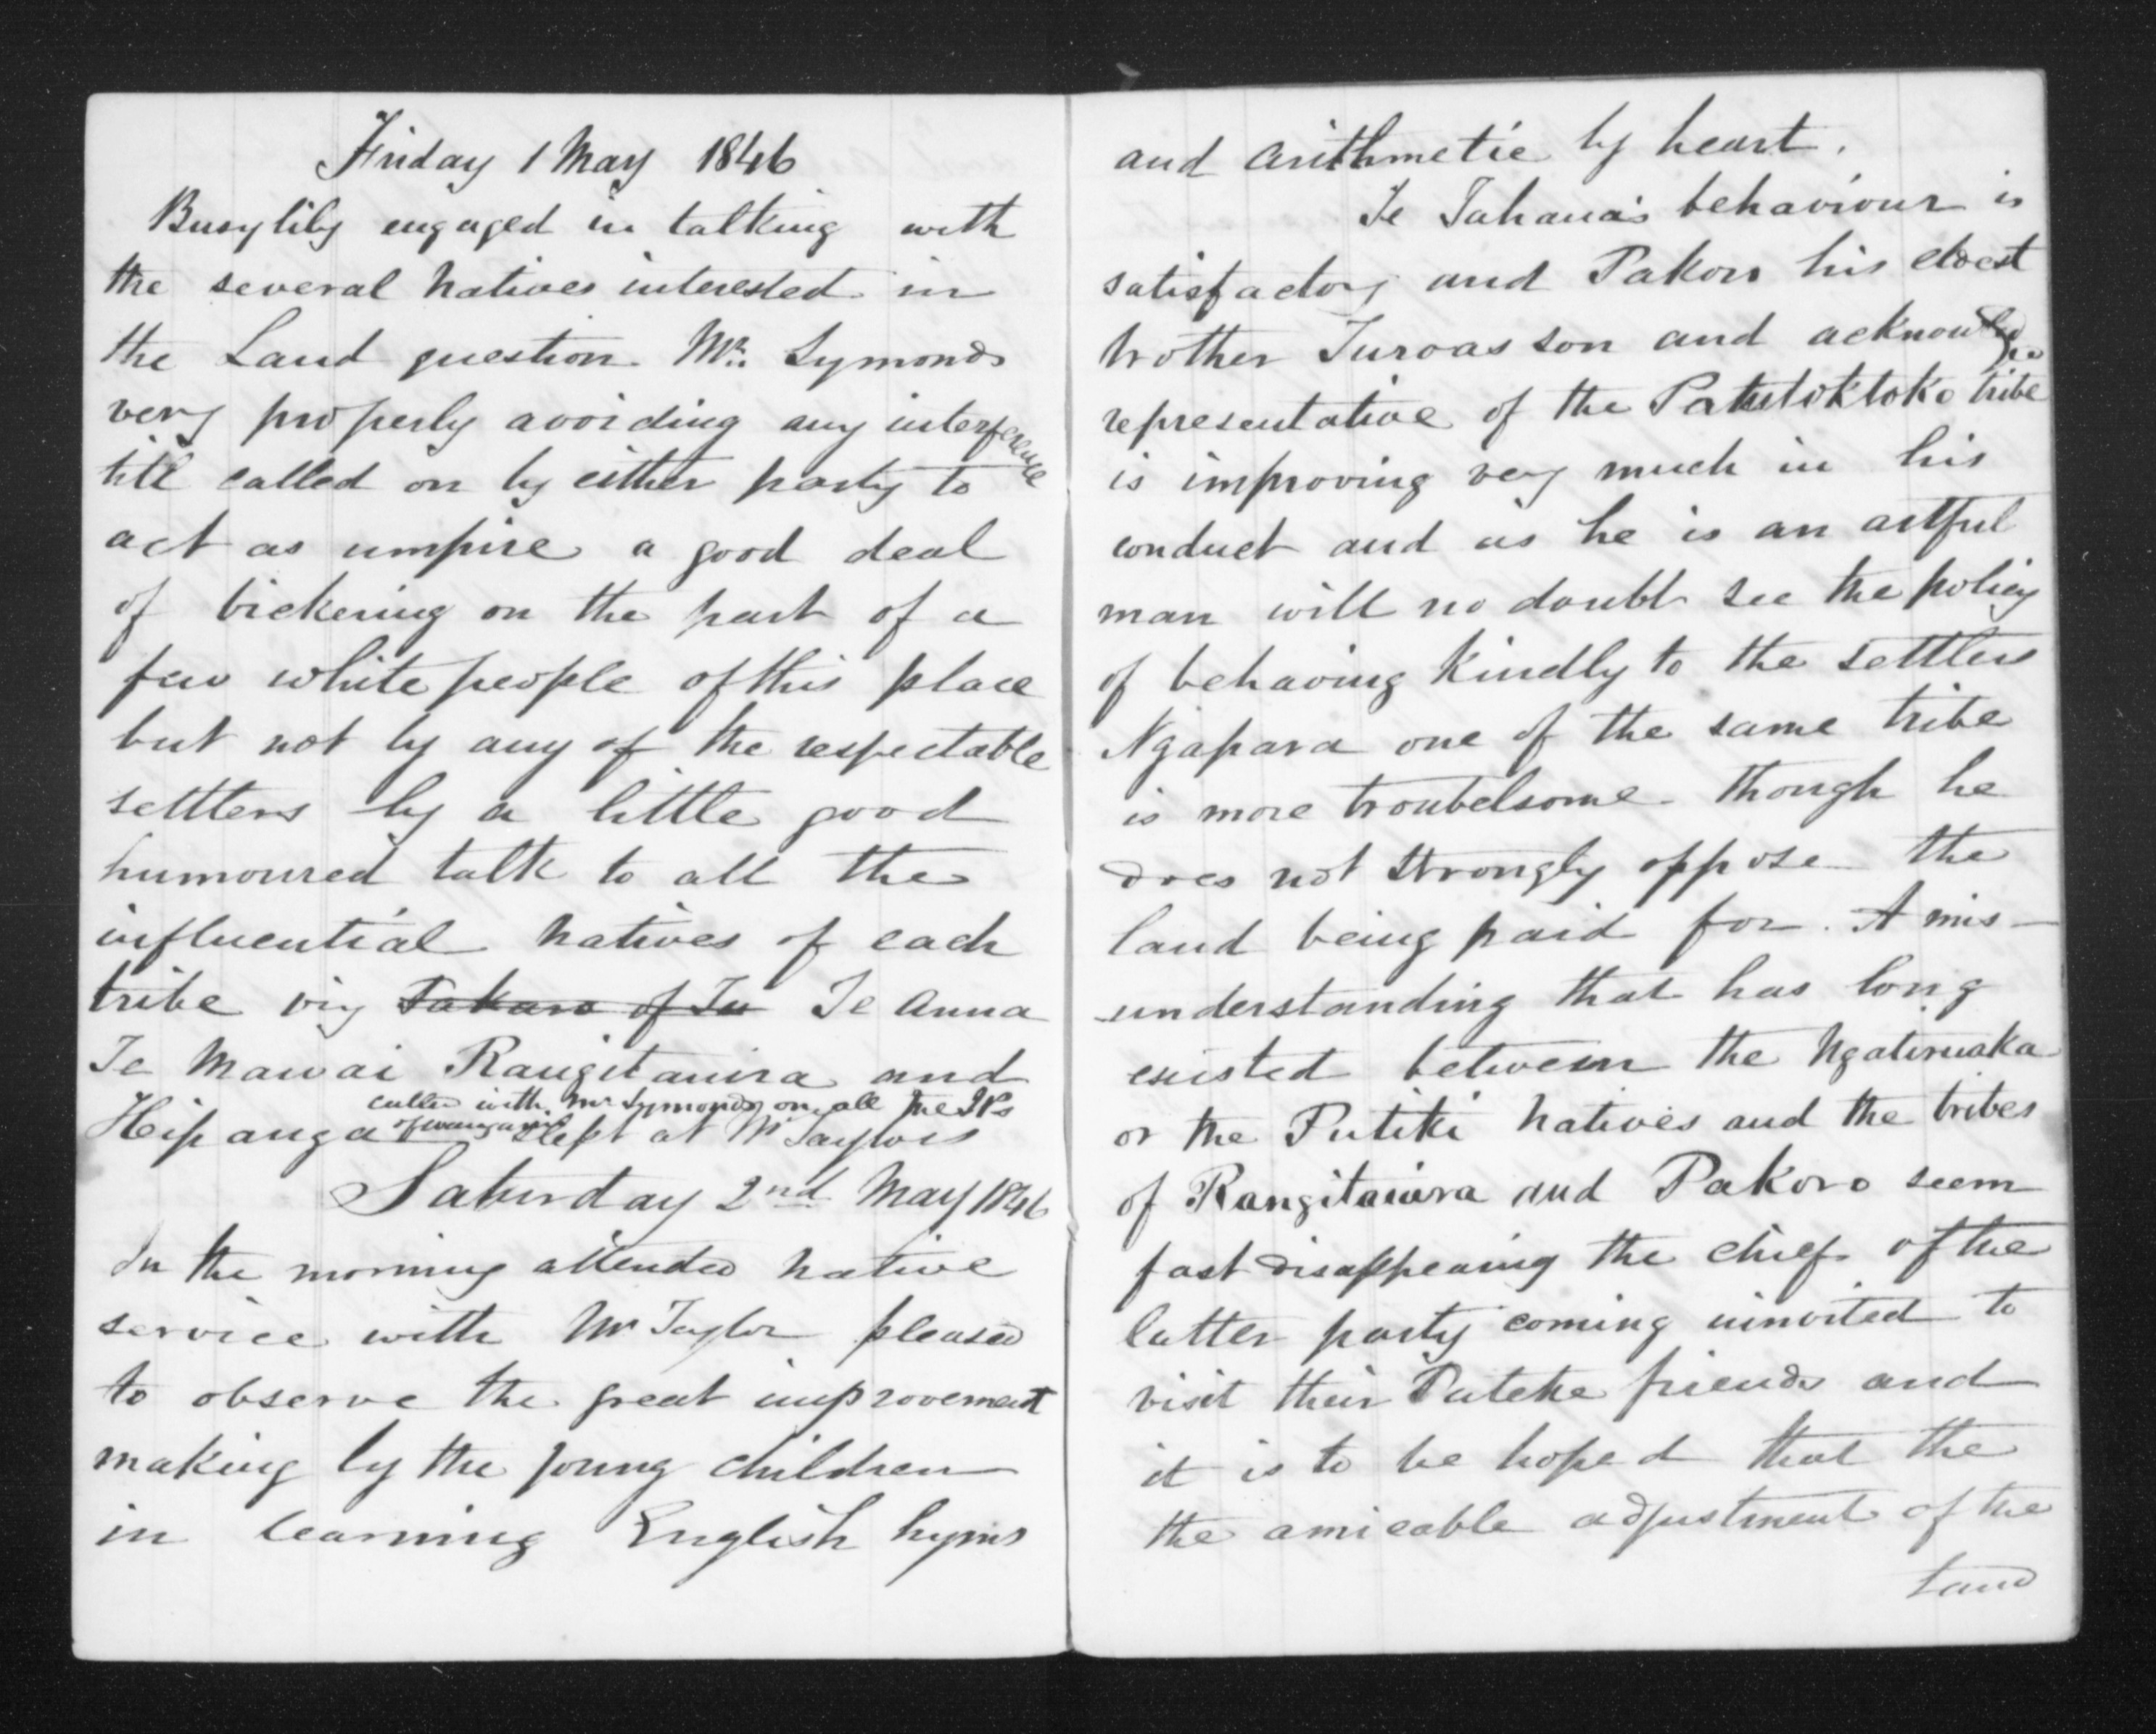 Friday 1 May 1846
Busylily engaged in talking with
the several natives interested in
the Land question Mr. Symonds
very properly avoiding any interference
till called on by either party to
act as umpire a good deal
of bickering on the part of a
few white people of this place
but not by any of the respectable
settlers by a little good
humoured talk to all the
influential natives of each
tribe viz Pakaro of Tu Te Anna
Te Mawai Rangitauira and
called with Mr Symonds on all the JPs
Hipanga of Wanganui slept at Mr Taylors
Saturday 2nd May 1846
In the morning attended native
service with Mr Taylor pleased
to observe the great improvement
making by the young children
in learning English hyms
and arithmetic by heart.
Te Tahana's behaviour is
satisfactory and Pakoro his eldest
brother Turoas son and acknowledge
representative of the Patutoktoko tribe
is improving very much in his
conduct and as he is an artful
man will no doubt see the policy
of behaving kindly to the settlers
Ngapara one of the same tribe
is more troubelsome though he
does not strongly oppose the
land being paid for. A mis-
understanding that has long
existed between the Ngatiruaka
or the Putiki natives and the tribes
of Rangitauira and Pakoro seem
fast disappearing the chief of the
latter party coming uninvited to
visit their Puteke friends and
it is to be hoped that the
the amicable adjustment of the
Land